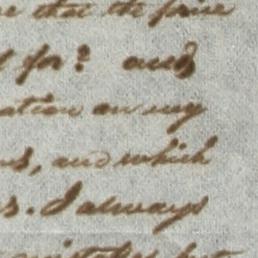 that the
for? and
ation on my
s, and which
s. I always
but